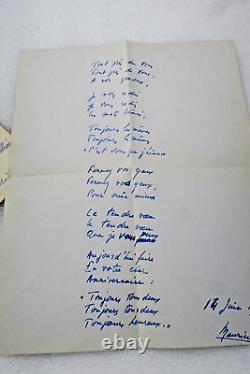 Tout près de vous
Tout près de vous
A vos genoux.
Je vous redis
Je vous redis
Les mots bénis:
Toujours la même
Toujours la même
"C'est vous que j'aime
Fermez vos yeux
Fermez vos yeux,
Pour mieux
Le tendre vœu
Le tendre vœu
Que je vous
Aujourd'hui faire
En votre cher
Anniversaire:
"Toujours tous deux
Toujours tous deux
Toujours heureux."
14 Juin
Maurice
© westhal.com